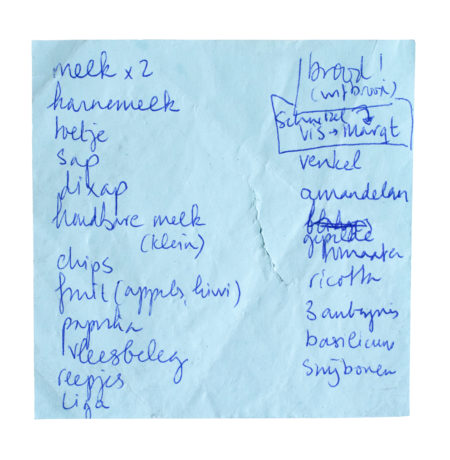 melk x 2
karnemelk
toetje
sap
dixap
houdbare melk
(klein)
chips
fruit (appels, kiwi)
paprika
vleesbeleg
reepjes
Liga
brood!
(witbrood)
Schnitzel
vis → markt
venkel
amandelen
gepelde
tomaten
ricotta
3 aubergines
basilicum
snijbonen